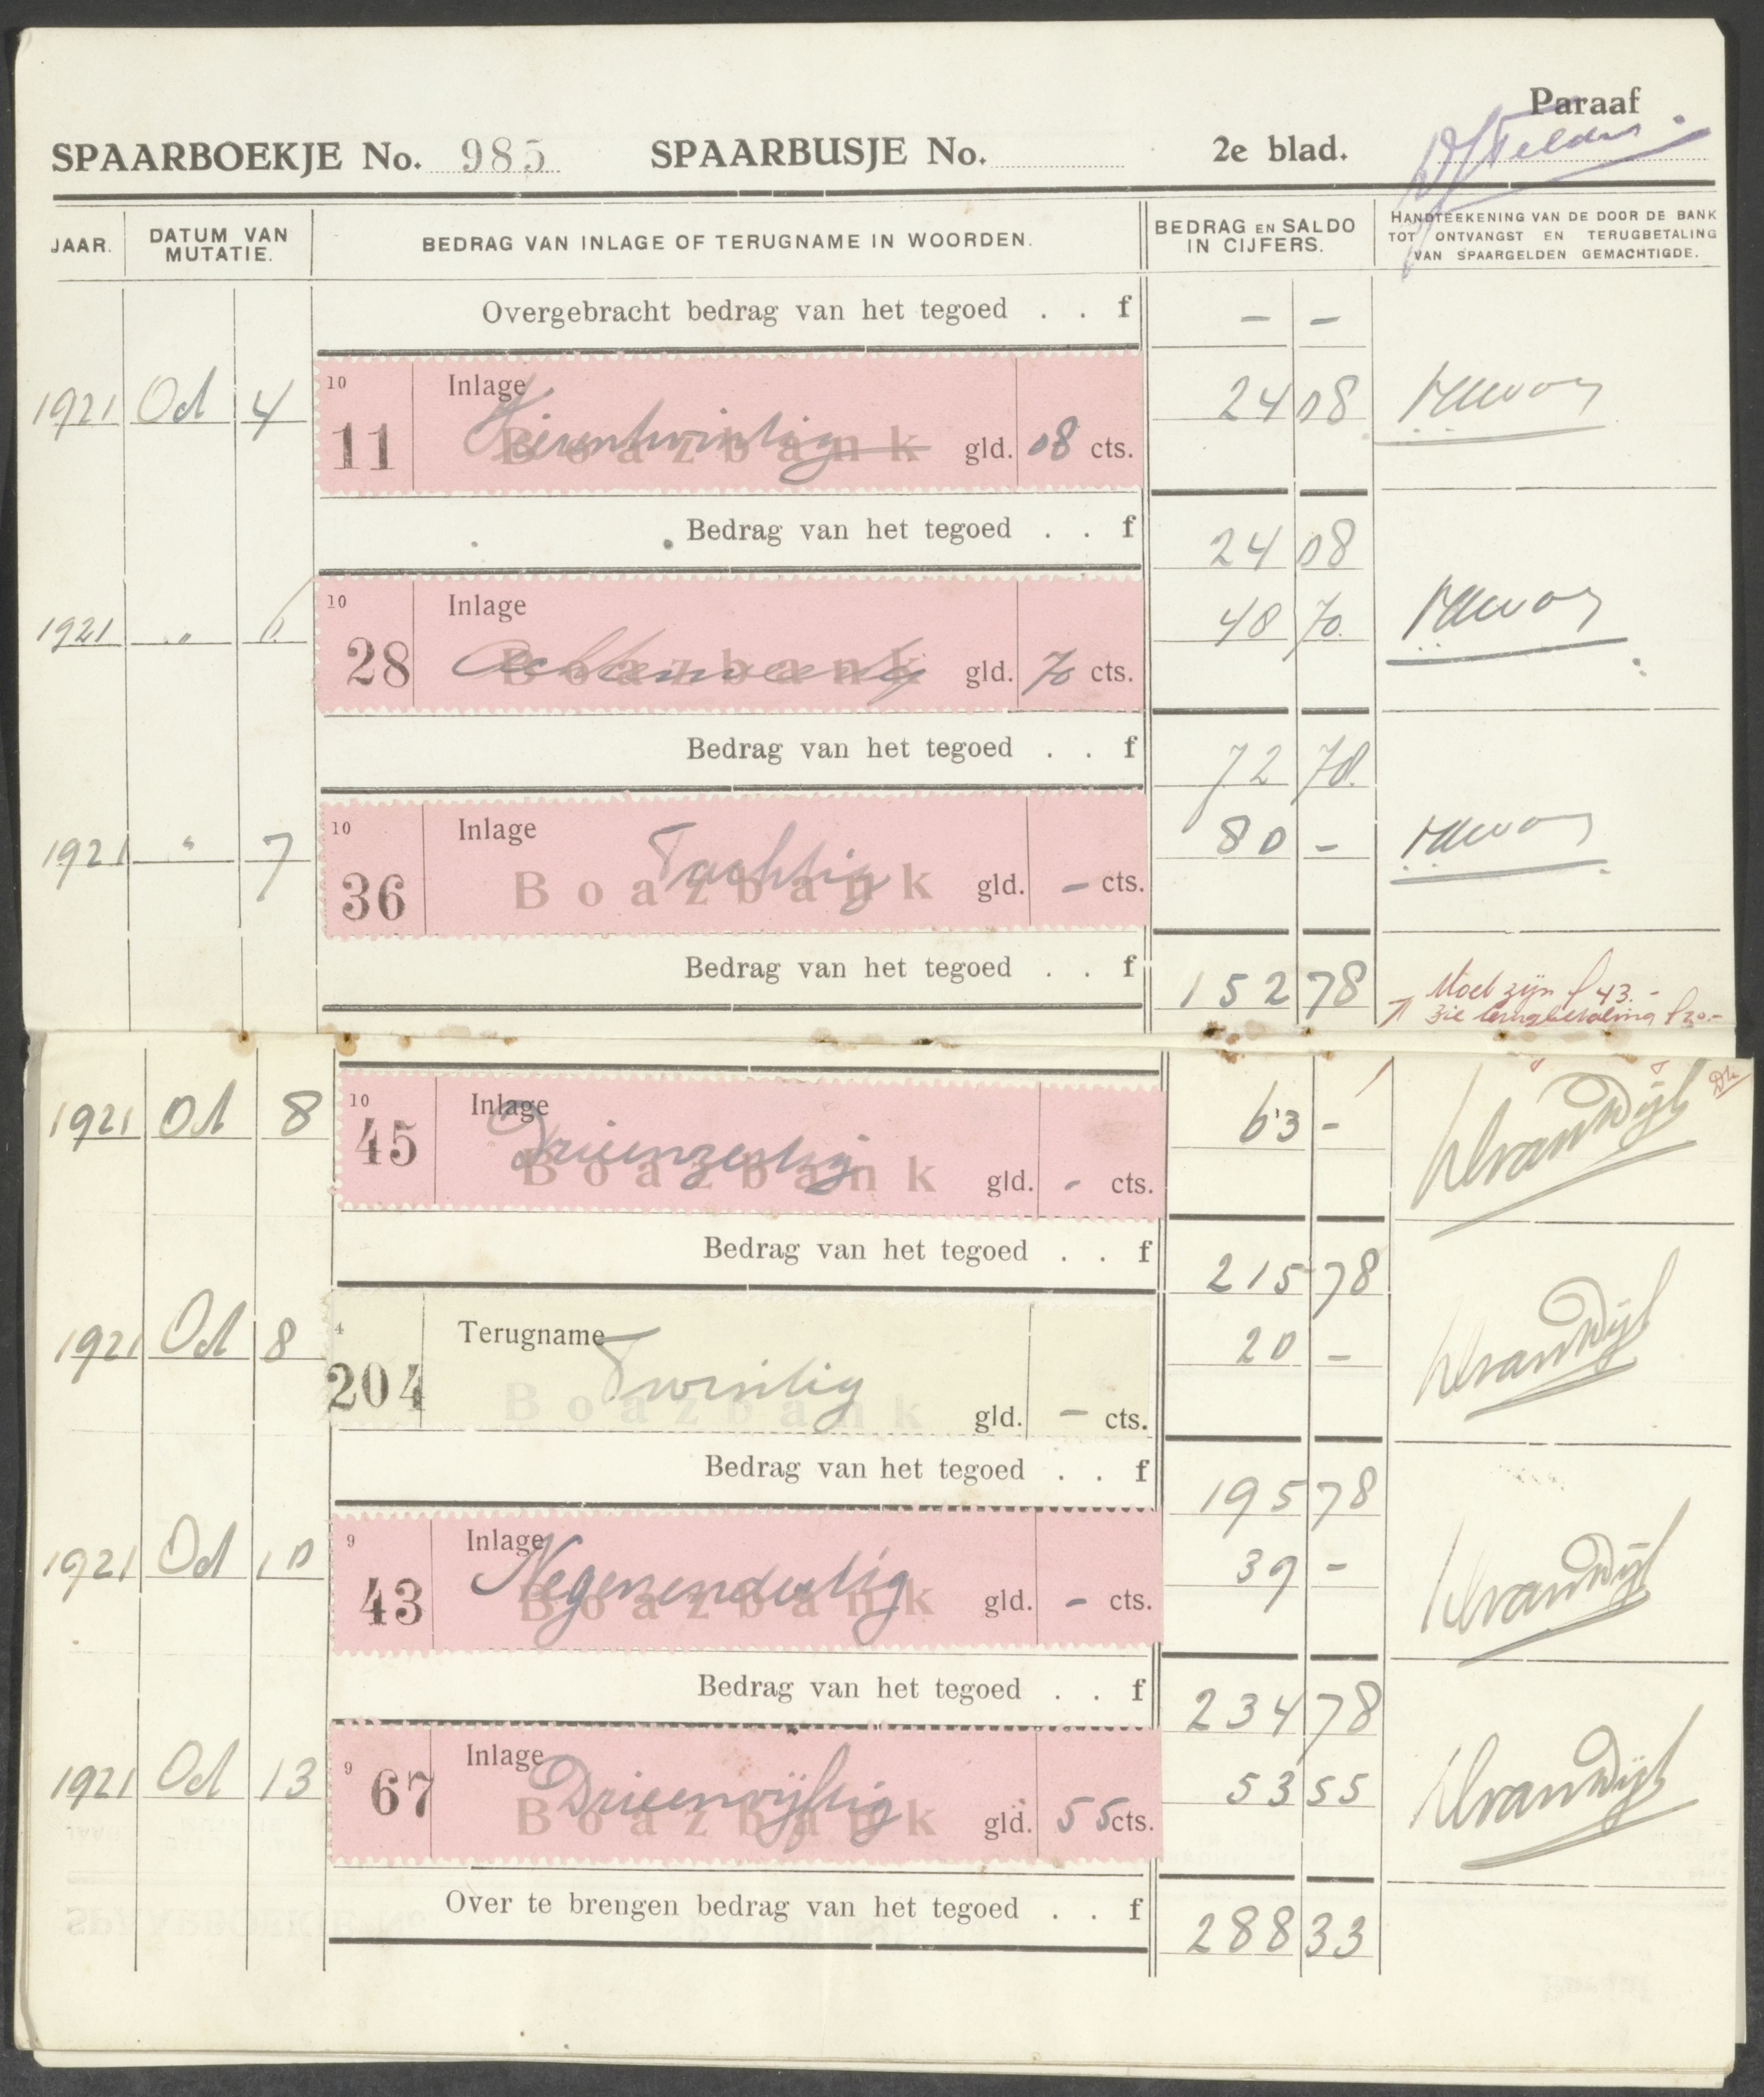 Paraaf
SPAARBOEKJE No. 985 SPAARBUSJE No. 2e blad.
JAAR. DATUM VAN MUTATIE. BEDRAG VAN INLAGE OF TERUGNAME IN WOORDEN. BEDRAG EN SALDO IN CIJFERS. HANDTEEKENING VAN DE DOOR DE BANK TOT ONTVANGST EN TERUGBETALING VAN SPAARGELDEN GEMACHTIGDE.
Overgebracht bedrag van het tegoed . . f – –
10 Inlage
1921 Oct 4 24 08
11 Boazbank Vierentwintig gld. 08 cts.
Bedrag van het tegoed . . f 24 08
10 Inlage
1921 „ 6 48 70
28 Boazbank Achtenveertig gld. 70 cts.
Bedrag van het tegoed . . f 72 78
10 Inlage
1921 „ 7 80 –
36 Boazbank Tachtig gld. – cts.
Bedrag van het tegoed . . f 152 78
Moet zijn f 43.-
zie terugbetaling f 20.-
10 Inlage
1921 Oct 8 63 –
45 Boazbank Drieenzestig gld. - cts.
Bedrag van het tegoed . . f 215 78
4 Terugname
1921 Oct 8 20 –
204 Boazbank Twintig gld. – cts.
Bedrag van het tegoed . . f 195 78
9 Inlage
1921 Oct 10 39 –
43 Boazbank Negenendertig gld. - cts.
Bedrag van het tegoed . . f 234 78
9 Inlage
1921 Oct 13 53 55
67 Boazbank Drieenvijftig gld. 55 cts.
Over te brengen bedrag van het tegoed . . f 288 33